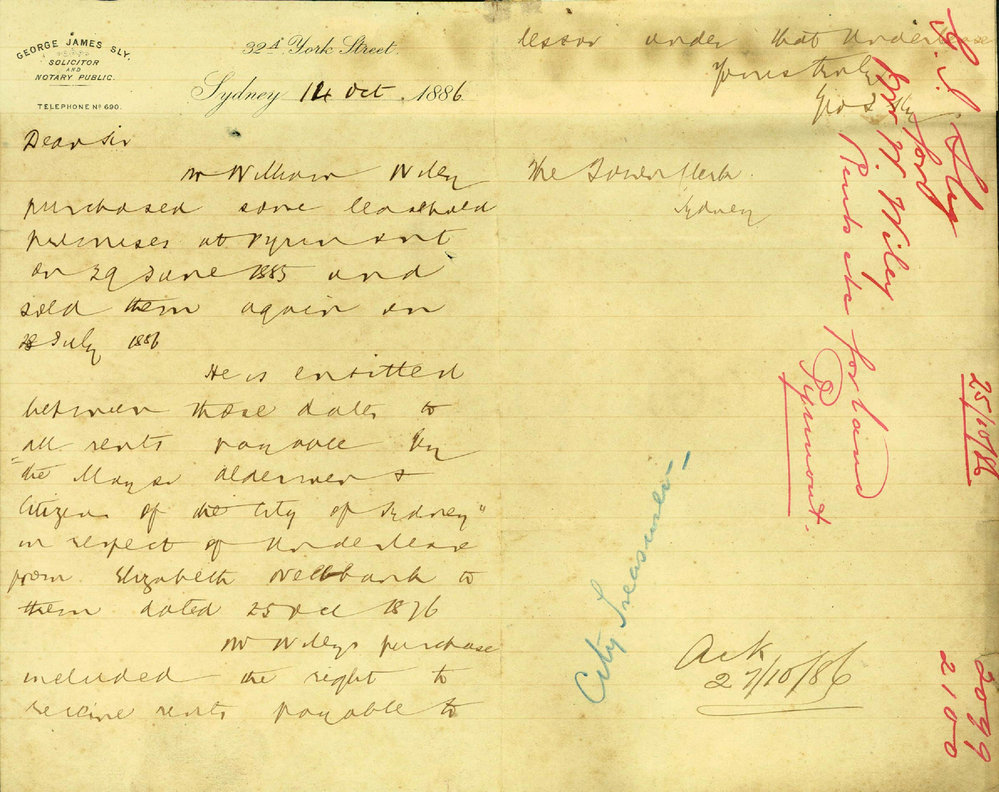 GEORGE JAMES SLY,
SOLICITOR
AND
NOTARY PUBLIC.
TELEPHONE No 690.
32A York Street.
Sydney 14 Oct. 1886.
Dear Sir
Mr William Wiley
purchased some leasehold
premises at Pyrmont
on 29 June 1885 and
sold them again on
July 1886
He is entitled
between those dates to
all rents payable by
"the Mayor aldermen &
Citizens of the City of Sydney"
in respect of Underlease
from Elizabeth Wellbank to
them dated 25 Oct 1876
Mr Wileys purchase
included the right to
receive rents payable to
lessor under that Underlease
Yours truly
Geo J Sly
The Town Clerk
Sydney
G. J. Sly
for
W. Wiley
Rents etc for land
Pyrmont.
25/10/86
2099
2100
City Treasurer
Ack
27/10/86